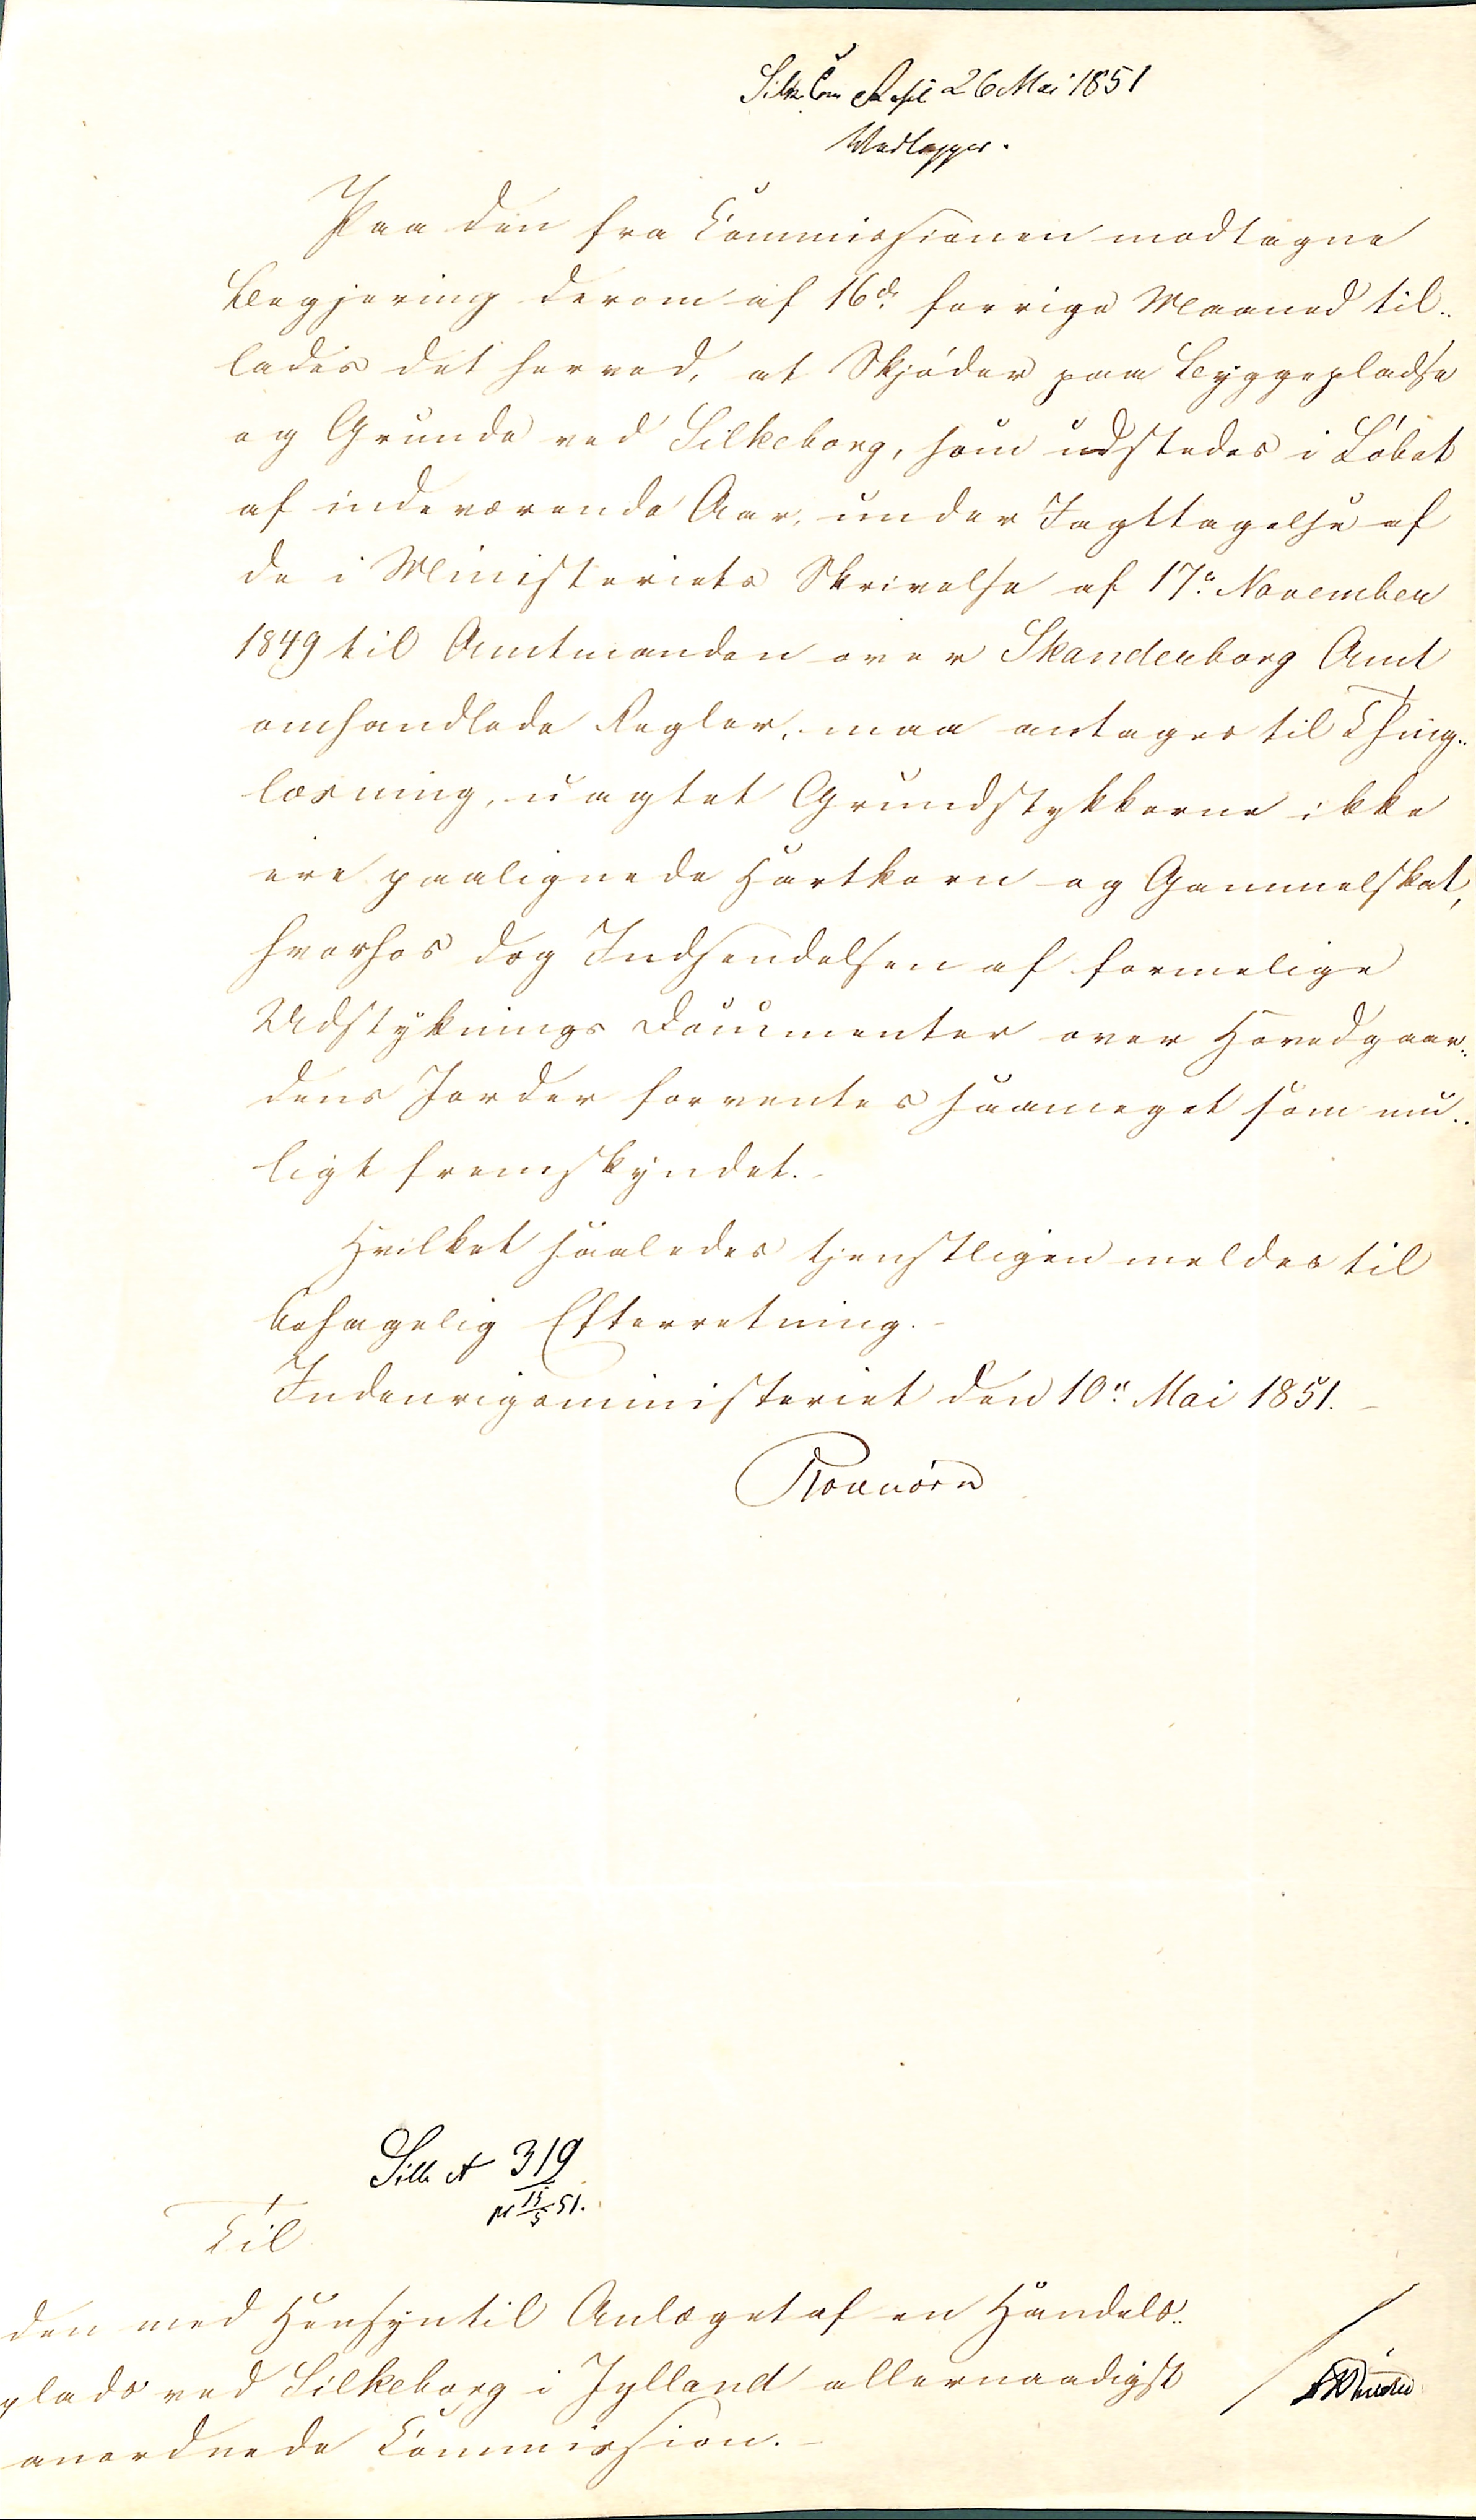 Silk. Com Resol 26 Mai 1851
Vedlægges.
Paa den fra Commissionen modtagne
Begjering derom af 16d. forrige Maaned til-
lades det herved, at Skjøder paa Byggepladse
og Grunde ved Silkeborg, som udstedes i Løbet
af indeværende Aar, under Iagttagelse af
de i Ministeriets Skrivelse af 17de November
1849 til Amtmanden over Skanderborg Amt
omhandlede Regler, maa antages til Thing-
læsning, uagtet Grundstykkerne ikke
ere paalignede Hartkorn og Gammelskat,
hvorhos dog Indsendelsen af formelige
Udstyknings Documenter over Hovedgaar-
dens Jorder forventes saameget som mu-
ligt fremskyndet.
Hvilket saaledes tjenstligen meldes til
behagelig Efterretning.
Indenrigsministeriet den 10de Mai 1851.
Rosenørn
Silk A 319
pr 15/5 51.
Til
den med Hensyn til Anlæget af en Handels-
plads ved Silkeborg i Jylland allernaadigst
anordnede Commission.